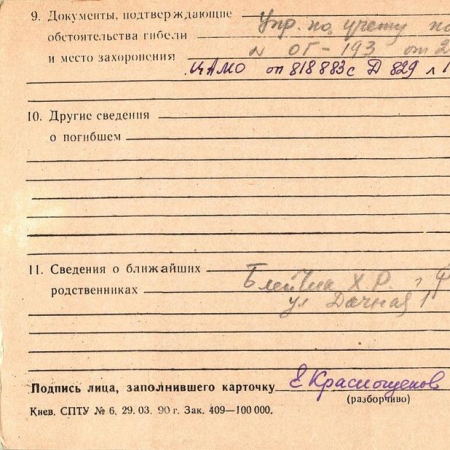 9. Документы, подтверждающие Упр. по учету по
обстоятельства гибели № ОГ-193 от 2
и место захоронения ЦАМО оп 818883с Д 829 л 1
10. Другие сведения
о погибшем
11. Сведения о ближайших Х.Р. г
родственниках ул Дачная 1
Подпись лица, заполнившего карточку Е Краснощеков
(разборчиво)
Киев. СПТУ № 6, 29. 03. 90 г. Зак. 409—100 000.